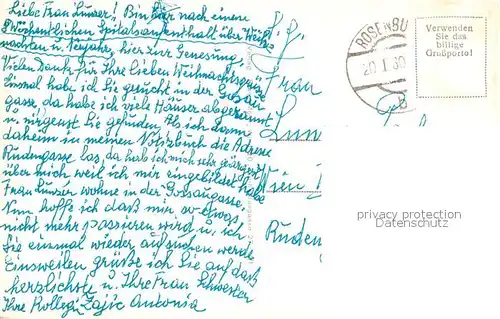 Liebe Frau Lunzer! Bin hier nach einem
8 Wöchentlichen Spitalsaufenthalt über Weih-
nachten u. Neujahr, hier zur Genesung.
Vielen Dank für Ihre lieben Weihnachtsgrüße
Einmal habe ich Sie gesucht in der
gasse, da habe ich viele Häuser abgerannt
u. nirgenst Sie gefunden. Als ich dann
daheim in meinen Notizbuch die Adresse
Rudengasse las, da hab ich mich sehr geärgert
über mich weil ich mir eingebildet habe
Frau Lunzer wohne in der Gossaugasse.
Nun hoffe ich daß mir so etwas
nicht mehr passieren wird u. ich
Sie einmal wieder aufsuchen werde
Einsweilen grüße ich Sie auf daß
herzlichste u. Ihre Frau Schwester
Ihre Kollegin Zajic Antonia
Frau
Lun
Wien
Ruden
ROSENBU
20. I. 60
Verwenden
Sie das
billige
Großporto!
privacy protection
Datenschutz